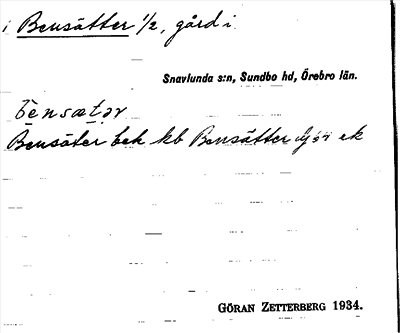 i Bensätter 1/2, gård i
Snavlunda s:n, Sundbo hd, Örebro län.
bensætər
Bensäter bek kb Bensätter djsr ek
GÖRAN ZETTERBERG 1934.